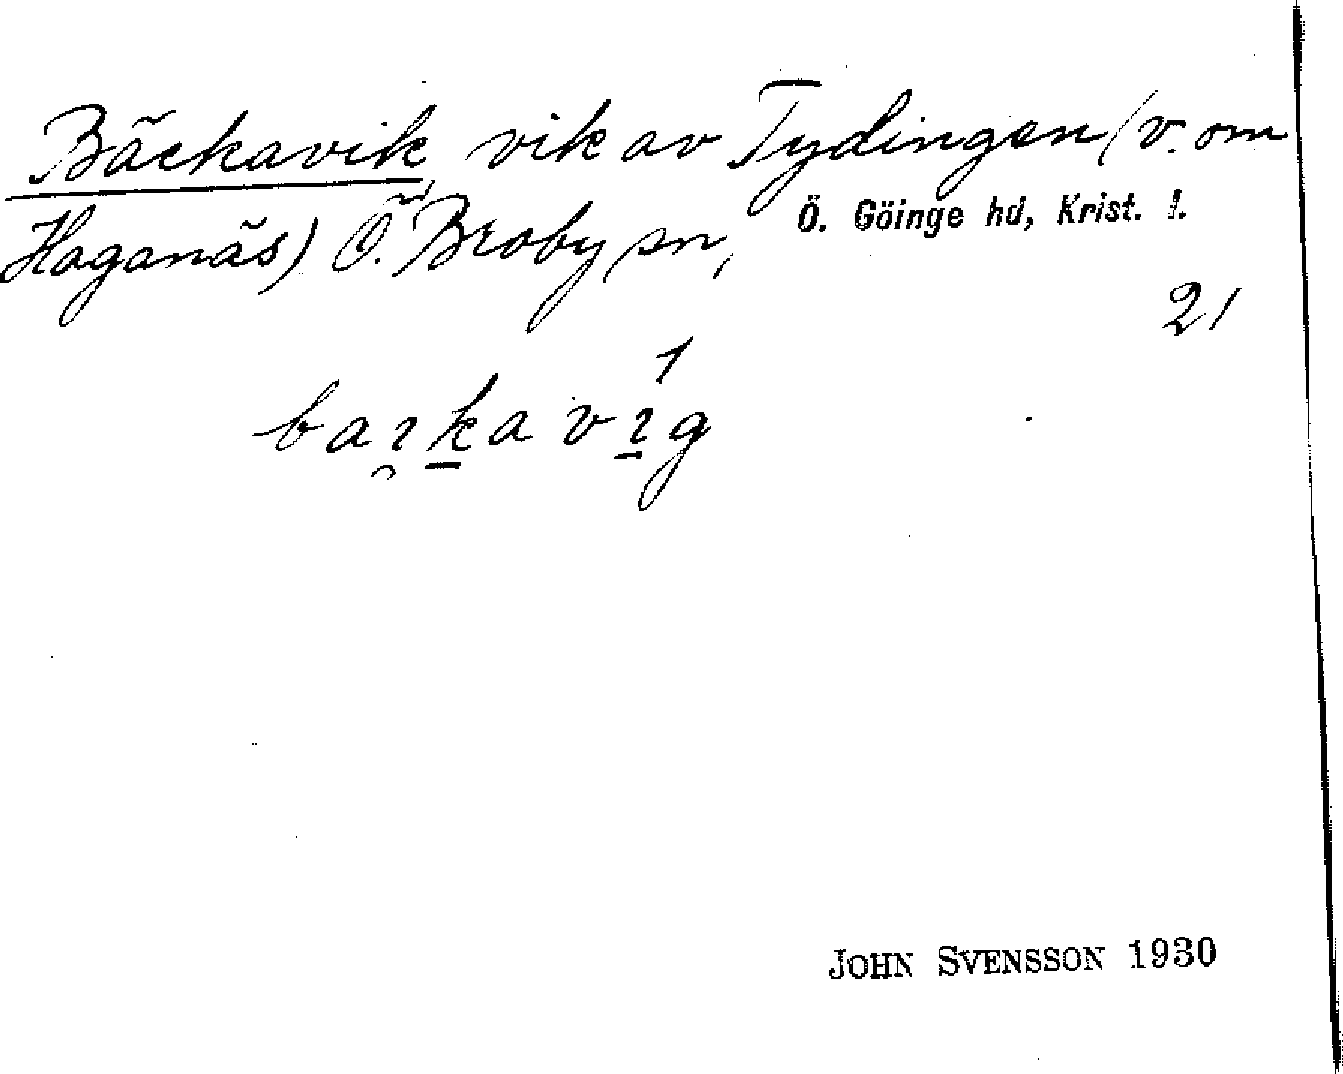 Bäckavik, vik av Tydingen (v. om
Haganäs) Ö. Broby sn, Ö. Göinge hd, Krist. l.
21
baı̯ka vı́g
JOHN SVENSSON 1930